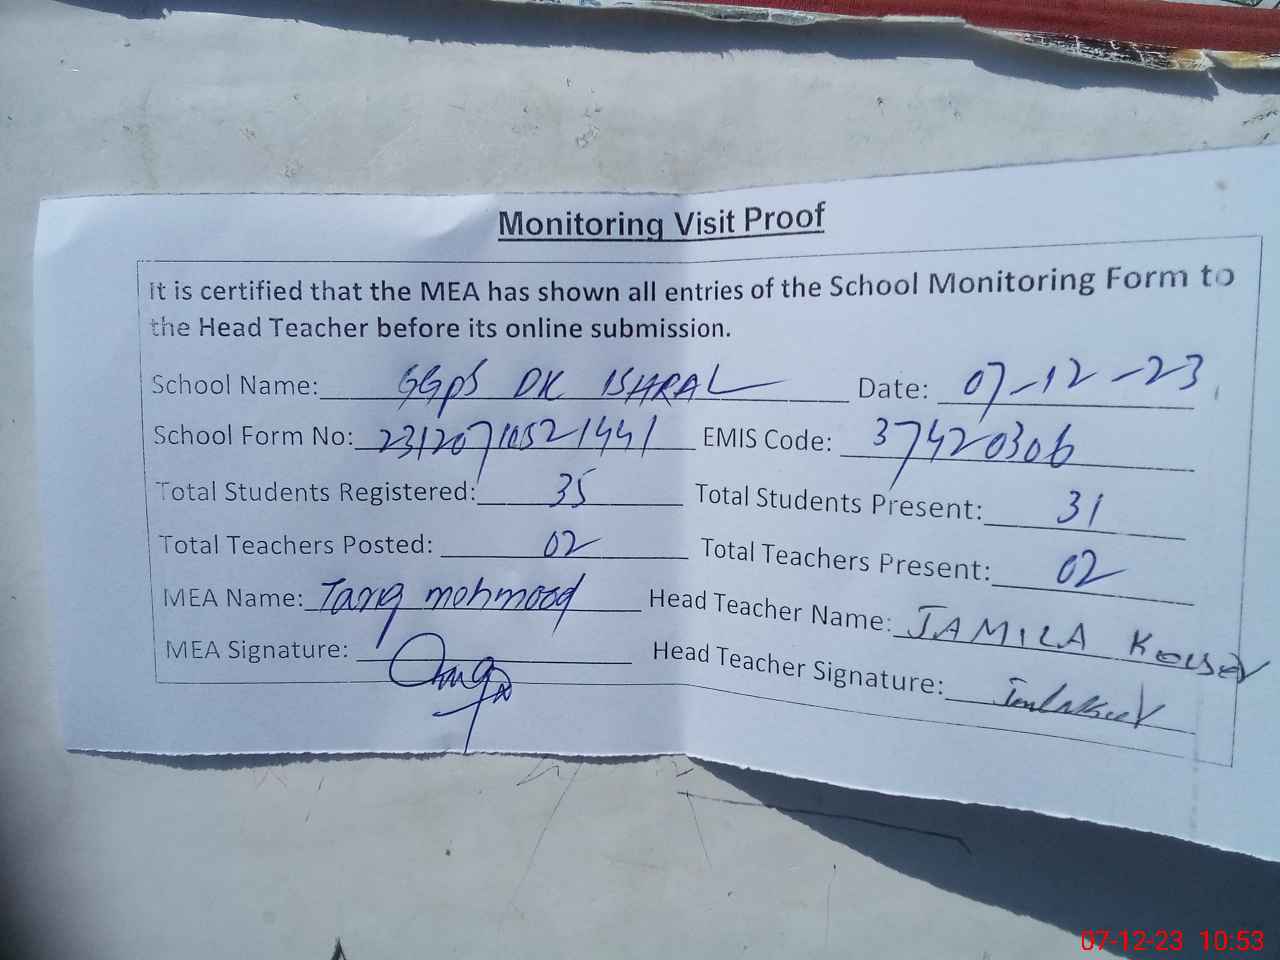 Monitoring Visit Proof
It is certified that the MEA has shown all entries of the School Monitoring Form to
the Head Teacher before its online submission.
School Name: GGPS DK ISHRAL Date: 07-12-23
School Form No: 23120710521441 EMIS Code: 37420306
Total Students Registered: 35 Total Students Present: 31
Total Teachers Posted: 02 Total Teachers Present: 02
MEA Name: Tariq mehmood Head Teacher Name: JAMILA Kousar
MEA Signature: Head Teacher Signature:
07-12-23 10:53